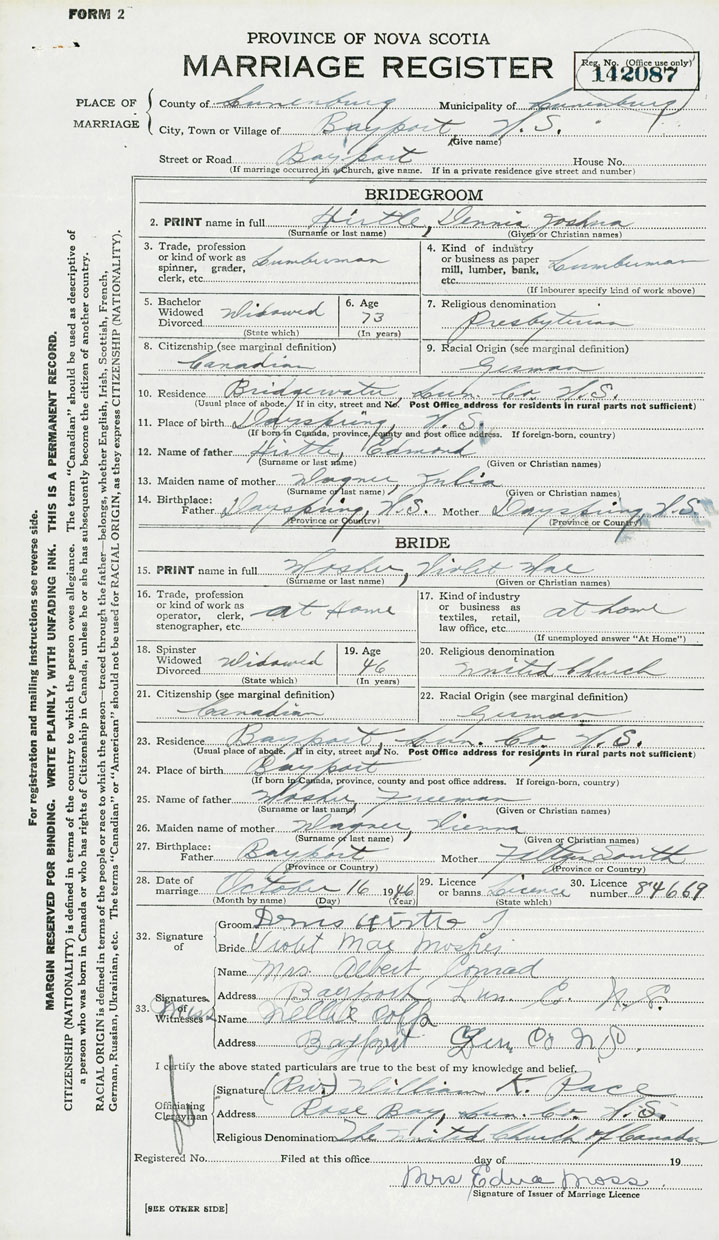 FORM 2
PROVINCE OF NOVA SCOTIA
MARRIAGE REGISTER
Reg. No. (Office use only)
142087
PLACE OF MARRIAGE
County of Lunenburg Municipality of Lunenburg
City, Town or Village of Bayport N.S.
(Give name)
Street or Road Bayport House No.
(If marriage occurred in a Church, give name. If in a private residence give street and number)
BRIDEGROOM
2. PRINT name in full Hirtle, Dennis Joshua
(Surname or last name) (Given or Christian names)
3. Trade, profession or kind of work as spinner, grader, clerk, etc. Lumberman
4. Kind of industry or business as paper mill, lumber, bank, etc. Lumberman
(If labourer specify kind of work above)
5. Bachelor Widowed Divorced Widowed
(State which)
6. Age 73
(In years)
7. Religious denomination
Presbyterian
8. Citizenship (see marginal definition)
Canadian
9. Racial Origin (see marginal definition)
German
10. Residence Bridgewater, Lun. Co. N.S.
(Usual place of abode. If in city, street and No. Post Office address for residents in rural parts not sufficient)
11. Place of birth Dayspring, N.S.
(If born in Canada, province, county and post office address. If foreign-born, country)
12. Name of father Hirtle, Edmond
(Surname or last name) (Given or Christian names)
13. Maiden name of mother Wagner, Julia
(Surname or last name) (Given or Christian names)
14. Birthplace: Father Dayspring, N.S. Mother Dayspring, N.S.
(Province or Country) (Province or Country)
BRIDE
15. PRINT name in full Mosher, Violet Mae
(Surname or last name) (Given or Christian names)
16. Trade, profession or kind of work as operator, clerk, stenographer, etc. at Home
17. Kind of industry or business as textiles, retail, law office, etc. at home
(If unemployed answer "At Home")
18. Spinster Widowed Divorced Widowed
(State which)
19. Age 46
(In years)
20. Religious denomination
United Church
21. Citizenship (see marginal definition)
Canadian
22. Racial Origin (see marginal definition)
German
23. Residence Bayport, Lun. Co., N.S.
(Usual place of abode. If in city, street and No. Post Office address for residents in rural parts not sufficient)
24. Place of birth Bayport
(If born in Canada, province, county and post office address. If foreign-born, country)
25. Name of father Mosher, Freeman
(Surname or last name) (Given or Christian names)
26. Maiden name of mother Wagner, Vienna
(Surname or last name) (Given or Christian names)
27. Birthplace: Father Bayport Mother South
(Province or Country) (Province or Country)
28. Date of marriage October 16 1946
(Month by name) (Day) (Year)
29. Licence or banns Licence
(State which)
30. Licence number 84669
32. Signature of
Groom Denis Hirtle
Bride Violet Mae
33. Signatures of Witnesses
Name Mrs. Albert Conrad
Address Bayport Lun Co. N.S.
Miss
Name Nellie Colp
Address Bayport Lun Co N.S.
I certify the above stated particulars are true to the best of my knowledge and belief.
Officiating Clergyman
Signature (Rev.) William K. Pace
Address Rose Bay, Lun. Co. N.S.
Religious Denomination The United Church of Canada
Registered No. Filed at this office day of 19
Mrs Edna Moss.
Signature of Issuer of Marriage Licence
[SEE OTHER SIDE]
For registration and mailing instructions see reverse side.
MARGIN RESERVED FOR BINDING. WRITE PLAINLY, WITH UNFADING INK. THIS IS A PERMANENT RECORD.
CITIZENSHIP (NATIONALITY) is defined in terms of the country to which the person owes allegiance. The term "Canadian" should be used as descriptive of
a person who was born in Canada or who has rights of Citizenship in Canada, unless he or she has subsequently become the citizen of another country.
RACIAL ORIGIN is defined in terms of the people or race to which the person—traced through the father—belongs, whether English, Irish, Scottish, French,
German, Russian, Ukrainian, etc. The terms "Canadian" or "American" should not be used for RACIAL ORIGIN, as they express CITIZENSHIP (NATIONALITY).